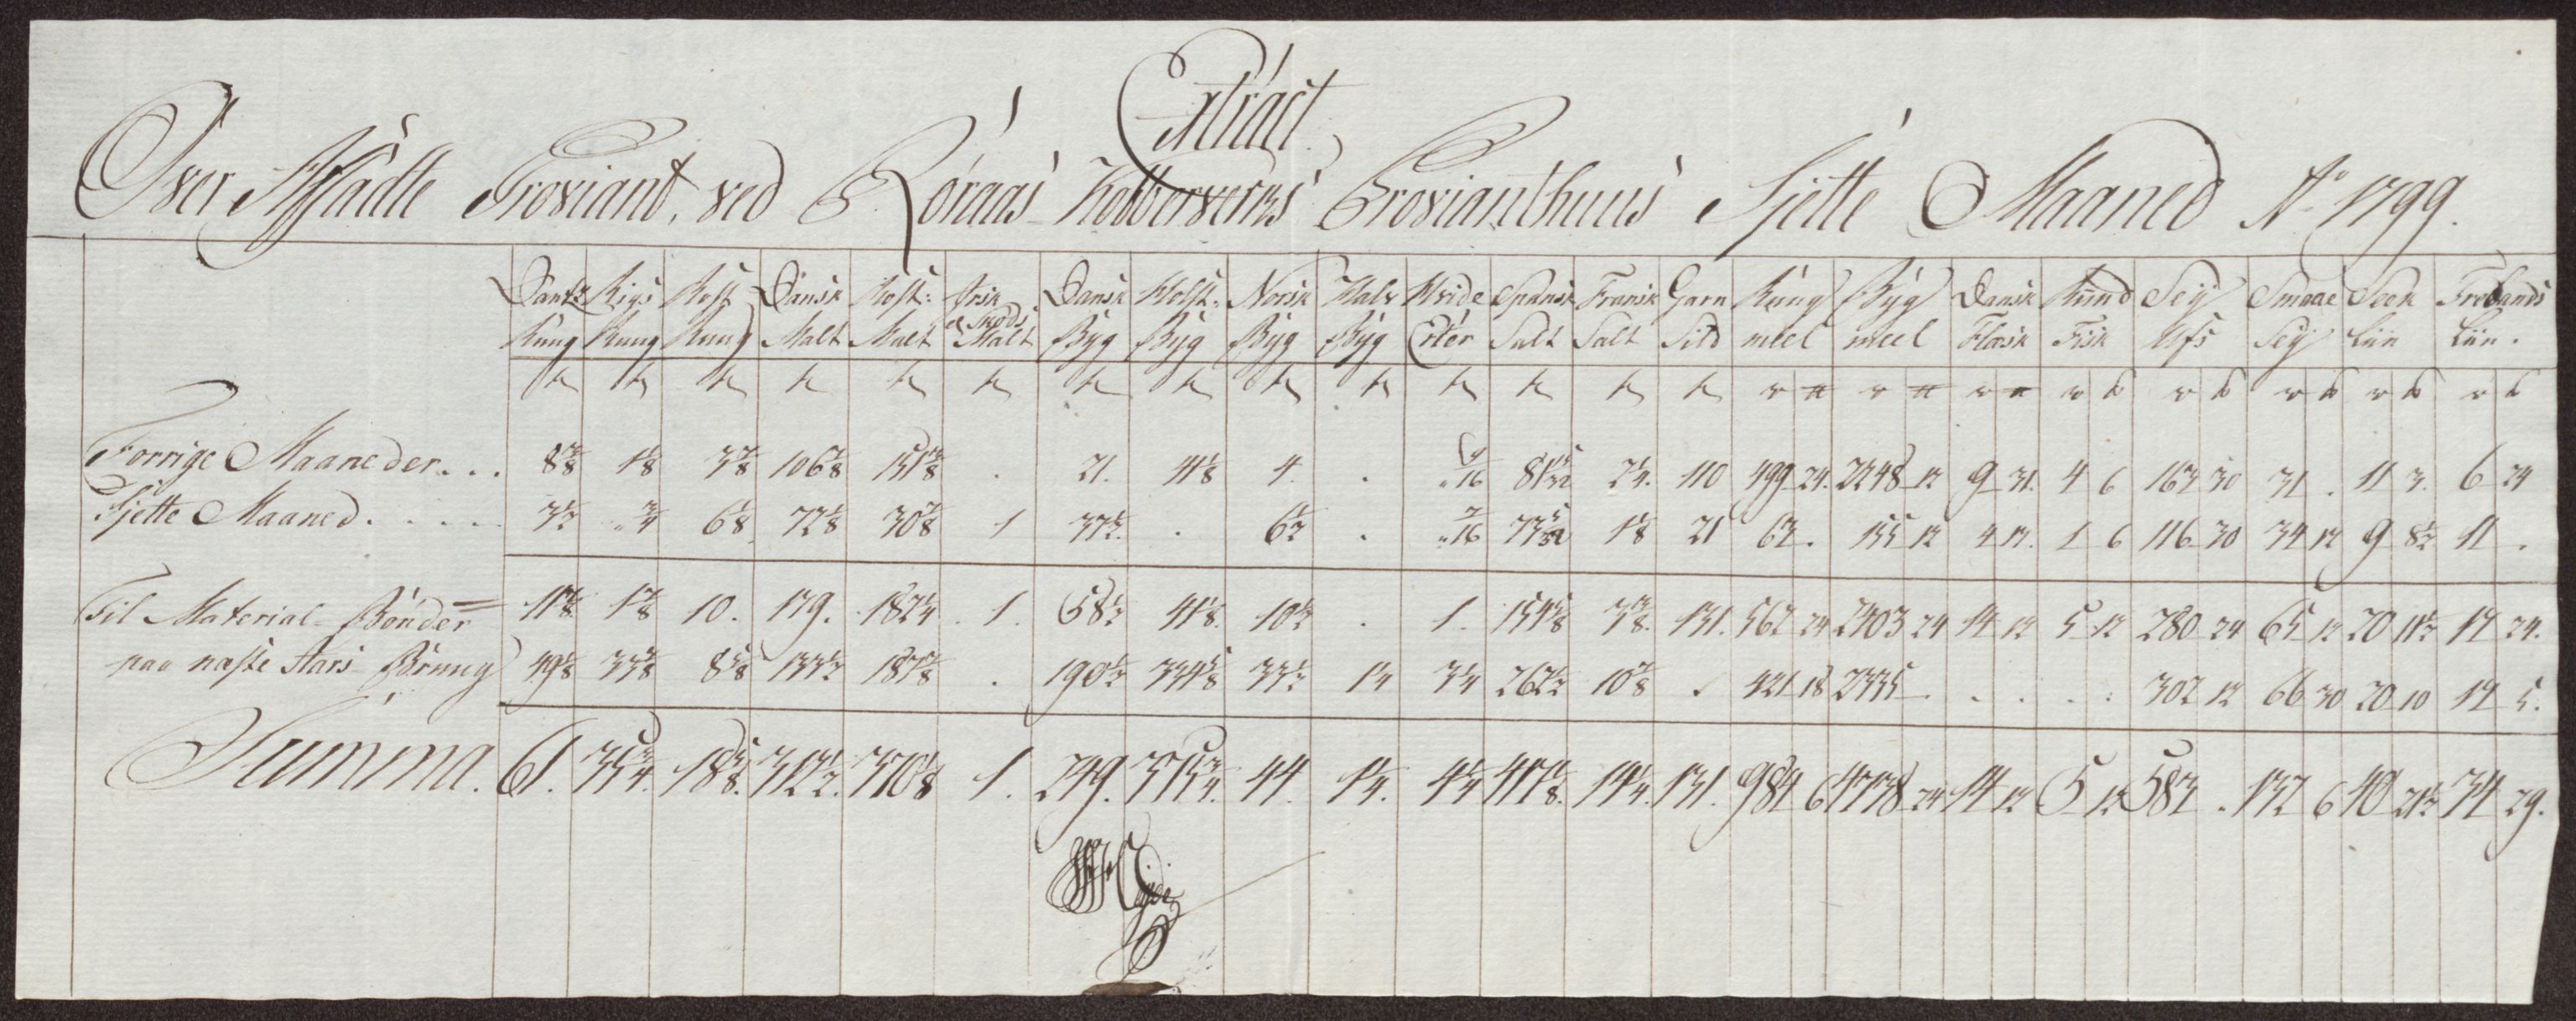 Extract
Over Afsadte Proviant, ved Röraas Kobberverks Provianthuus Sjette Maaned Ao 1799.
Dantz Rug | Rigs Rug | Rost Rug | Dansk Malt | Holst: Malt | Irsk el Skods Malt | Dansk Byg | Holst: Byg | Norsk Byg | Malv Byg | Hvide Erter | Spansk Salt | Fransk Salt | Garn Sild | Rug meel | Byg meel | Dansk Flæsk | Rund Fisk | Sey Ufs | Smaae Sey | Seen Liin | Trolands Liin.
Forrige Maaneder... | | 1 1/8 | 3 7/8 | 106 7/8 | | . | 21. | 41 1/8 | 4. | . | 9/16 | | 2 1/4. | 110 | 499 24. | 2248 12 | 9 31. | 4 6 | 163 30 | 31 . | 11 3. | 6 24
Sjette Maaned..... | 3 1/2 | 3/4 | 6 1/8 | 72 1/8 | 30 7/8 | 1 | 37 1/2. | . | 6 1/2 | . | 7/16 | | 1 1/8 | 21 | 63 . | 155 12 | 4 17. | 1 6 | 116 30 | 34 12 | 9 8 1/2 | 11 .
Til Material-Bönder= | 11 7/8 | 1 7/8 | 10. | 179. | 182 1/4 | 1. | 58 1/2 | 41 1/8. | 10 1/2 | . | 1. | 154 5/8 | 3 3/8. | 131. | 562 24 | 2403 24 | 14 12 | 5 12 | 280 24 | 65 12 | 20 11 1/2 | 17 24.
paa næste Aars Brug | 49 1/8 | 33 7/8 | 8 5/8 | 133 1/2 | 187 7/8 | . | 190 1/2 | 334 5/8 | 33 1/2 | 1 1/4 | 3 1/4 | 262 1/2 | 10 7/8 | . | 421 18 | 2335 | . . | . . | 302 12 | 66 30 | 20 10 | 17 5.
Summa. | 61. | 35 3/4. | 18 5/8. | 312 1/2. | 370 1/8 | 1. | 249. | 375 3/4. | 44. | 1 1/4. | 4 1/4 | 417 1/8. | 14 1/4. | 131. | 984 6 | 4738 24 | 14 12 | 5 12 | 583 . | 132 6 | 40 21 1/2 | 34 29.